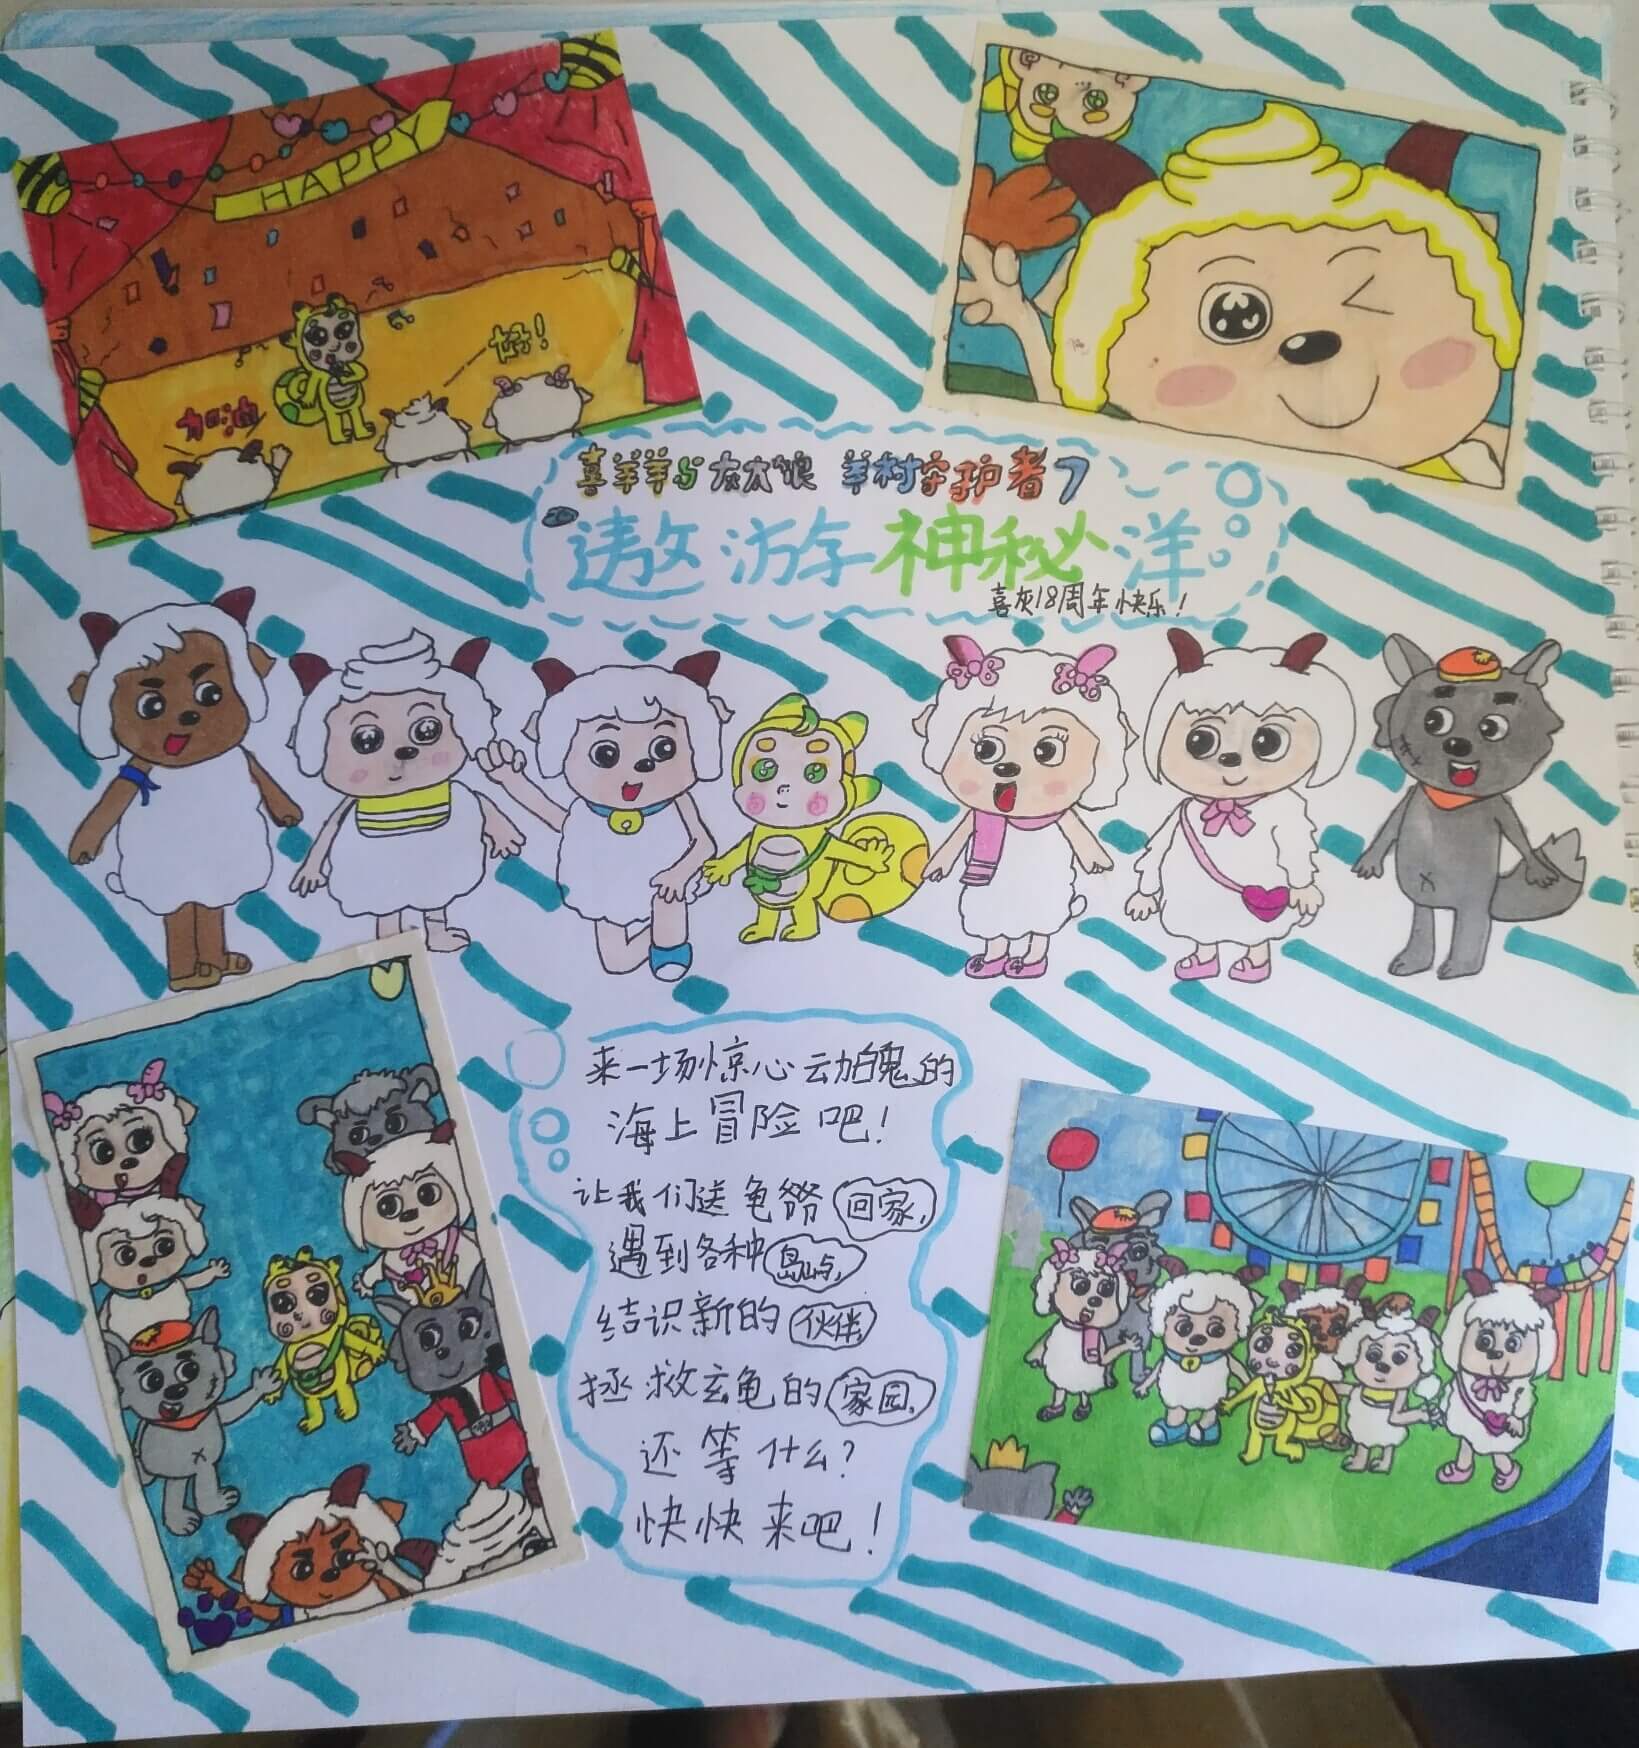 HAPPY
好!
加油
喜羊羊与灰太狼 羊村守护者7
遨游神秘洋
喜灰18周年快乐!
来一场惊心动魄的
海上冒险吧!
让我们送龟爷爷回家,
遇到各种岛屿,
结识新的伙伴
拯救玄龟的家园,
还等什么?
快快来吧!